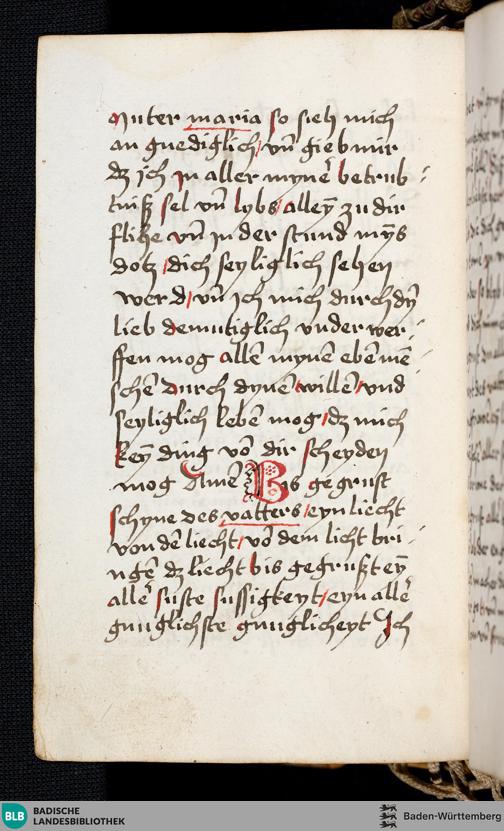 Muter maria so sieh mich
an gnediglich / vn̄ gieb mir
dz ich jn aller mynē betrub
tniß sel vn̄ lybs / alleȳ zu dir
flihe vn̄ jn der stund mȳs
dotz / dich seyliglich sehen
werd / vn̄ ich mich durch dȳ
lieb demutiglich vnder wer
ffen mog allē mynē ebemē
schē durch dynē willē / vnd
seyliglich lebē mog / dz mich
keȳ ding vō dir scheyden
mog Amē Bis gegrust
schyne des vatters / eyn liecht
von dē liecht / vō dem licht bri
ngē dz liecht bis gegrußt eȳ
allē suste sussigkeyt / eyn allē
gunglichste gunglicheyt Ich
BLB
BADISCHE
LANDESBIBLIOTHEK
Baden-Württemberg